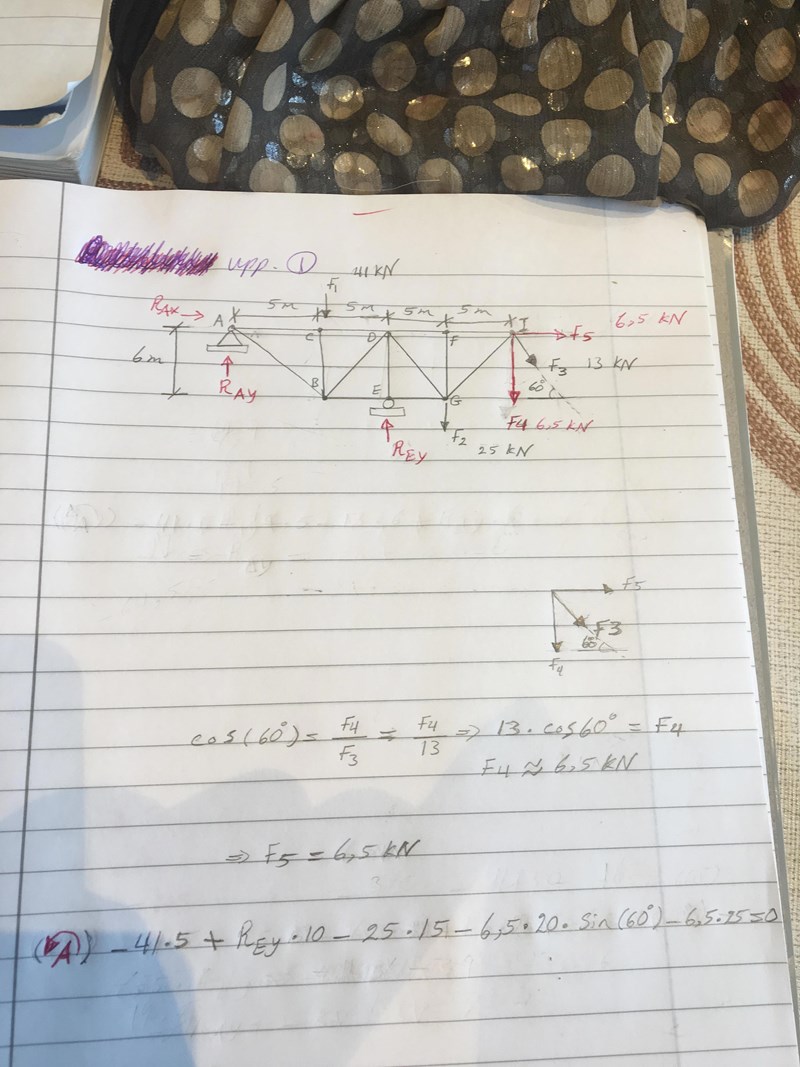 upp. 1
41 kN
F1
RAx → 5m 5m 5m 5m
A C D F I F5 6,5 kN
6m F3 13 kN
60°
B E G
RAy F4 6,5 kN
REy F2 25 kN
F5
F3
60°
F4
cos(60°) = F4/F3 = F4/13 ⇒ 13 · cos60° = F4
F4 ≈ 6,5 kN
⇒ F5 = 6,5 kN
(A) -41·5 + REy·10 - 25·15 - 6,5·20·Sin(60°) - 6,5·25=0